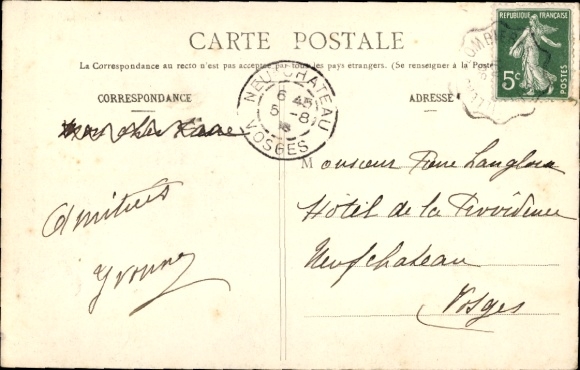 CARTE POSTALE
La Correspondance au recto n'est pas acceptée par tous les pays étrangers. (Se renseigner à la Poste)
CORRESPONDANCE
ADRESSE
RÉPUBLIQUE FRANÇAISE
5c
NEUFCHATEAU
6 45
5 -8
VOSGES
Amitiés
Yvonne
Monsieur Langlois
Hôtel de la Providence
Neufchateau
Vosges